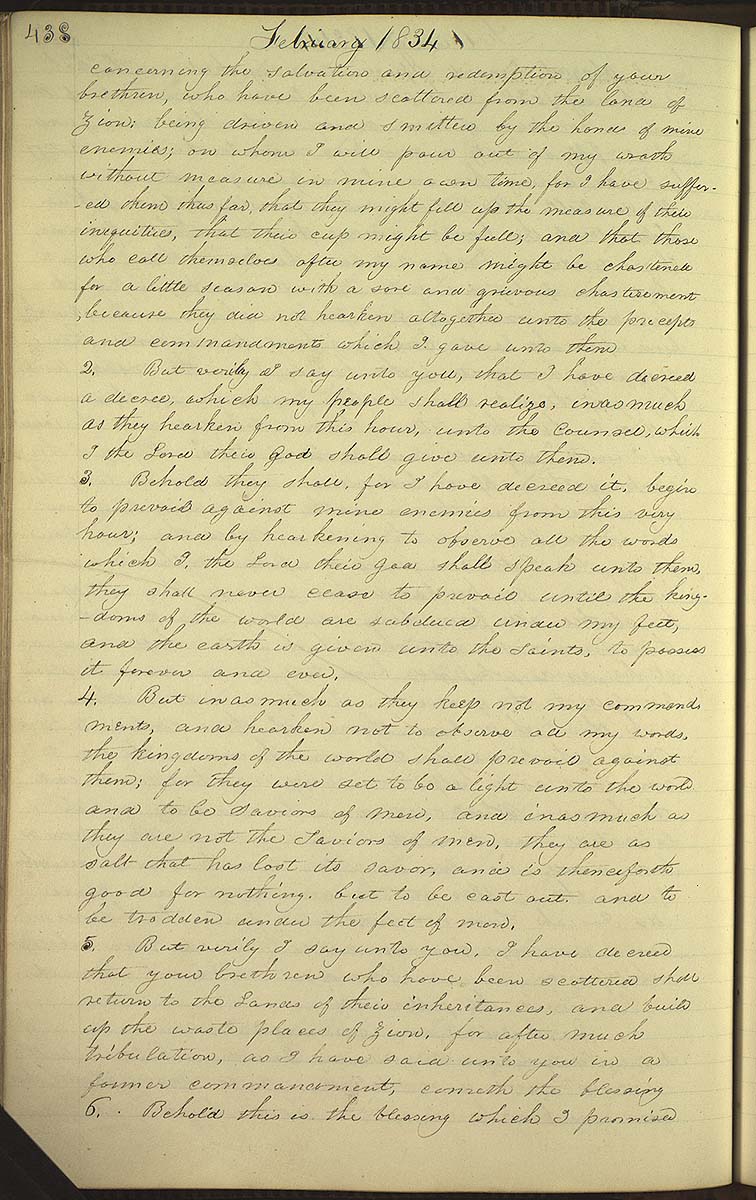 438
February 1834
concerning the salvation and redemption of your
brethren, who have been scattered from the land of
Zion; being driven and smitten by the hands of mine
enemies; on whom I will pour out of my wrath
without measure in mine own time, for I have suffer-
-ed them thus far, that they might fill up the measure of their
iniquities, that their cup might be full; and that those
who call themselves after my name might be chastened
for a little season with a sore and grievous chastisement
, because they did not hearken altogether unto the precepts
and commandments which I gave unto them
2. But verily I say unto you, that I have decreed
a decree, which my people shall realize, inasmuch
as they hearken from this hour, unto the counsel, which
I the Lord their God shall give unto them.
3. Behold they shall, for I have decreed it, begin
to prevail against mine enemies from this very
hour; and by hearkening to observe all the words
which I, the Lord their God shall speak unto them,
they shall never cease to prevail until the king-
-doms of the world are subdued under my feet,
and the earth is given unto the Saints, to possess
it forever and ever.
4. But inasmuch as they keep not my command
ments, and hearken not to observe all my words,
the kingdoms of the world shall prevail against
them; for they were set to be a light unto the world
and to be saviors of men, and inasmuch as
they are not the Saviors of men, they are as
salt that has lost its savor, and is thenceforth
good for nothing. but to be cast out. and to
be trodden under the feet of men.
5. But verily I say unto you. I have decreed
that your brethren who have been scattered shall
return to the Lands of their inheritances, and build
up the waste places of Zion, for after much
tribulation, as I have said unto you in a
former commandment, cometh the blessing
6. Behold this is the blessing which I promised